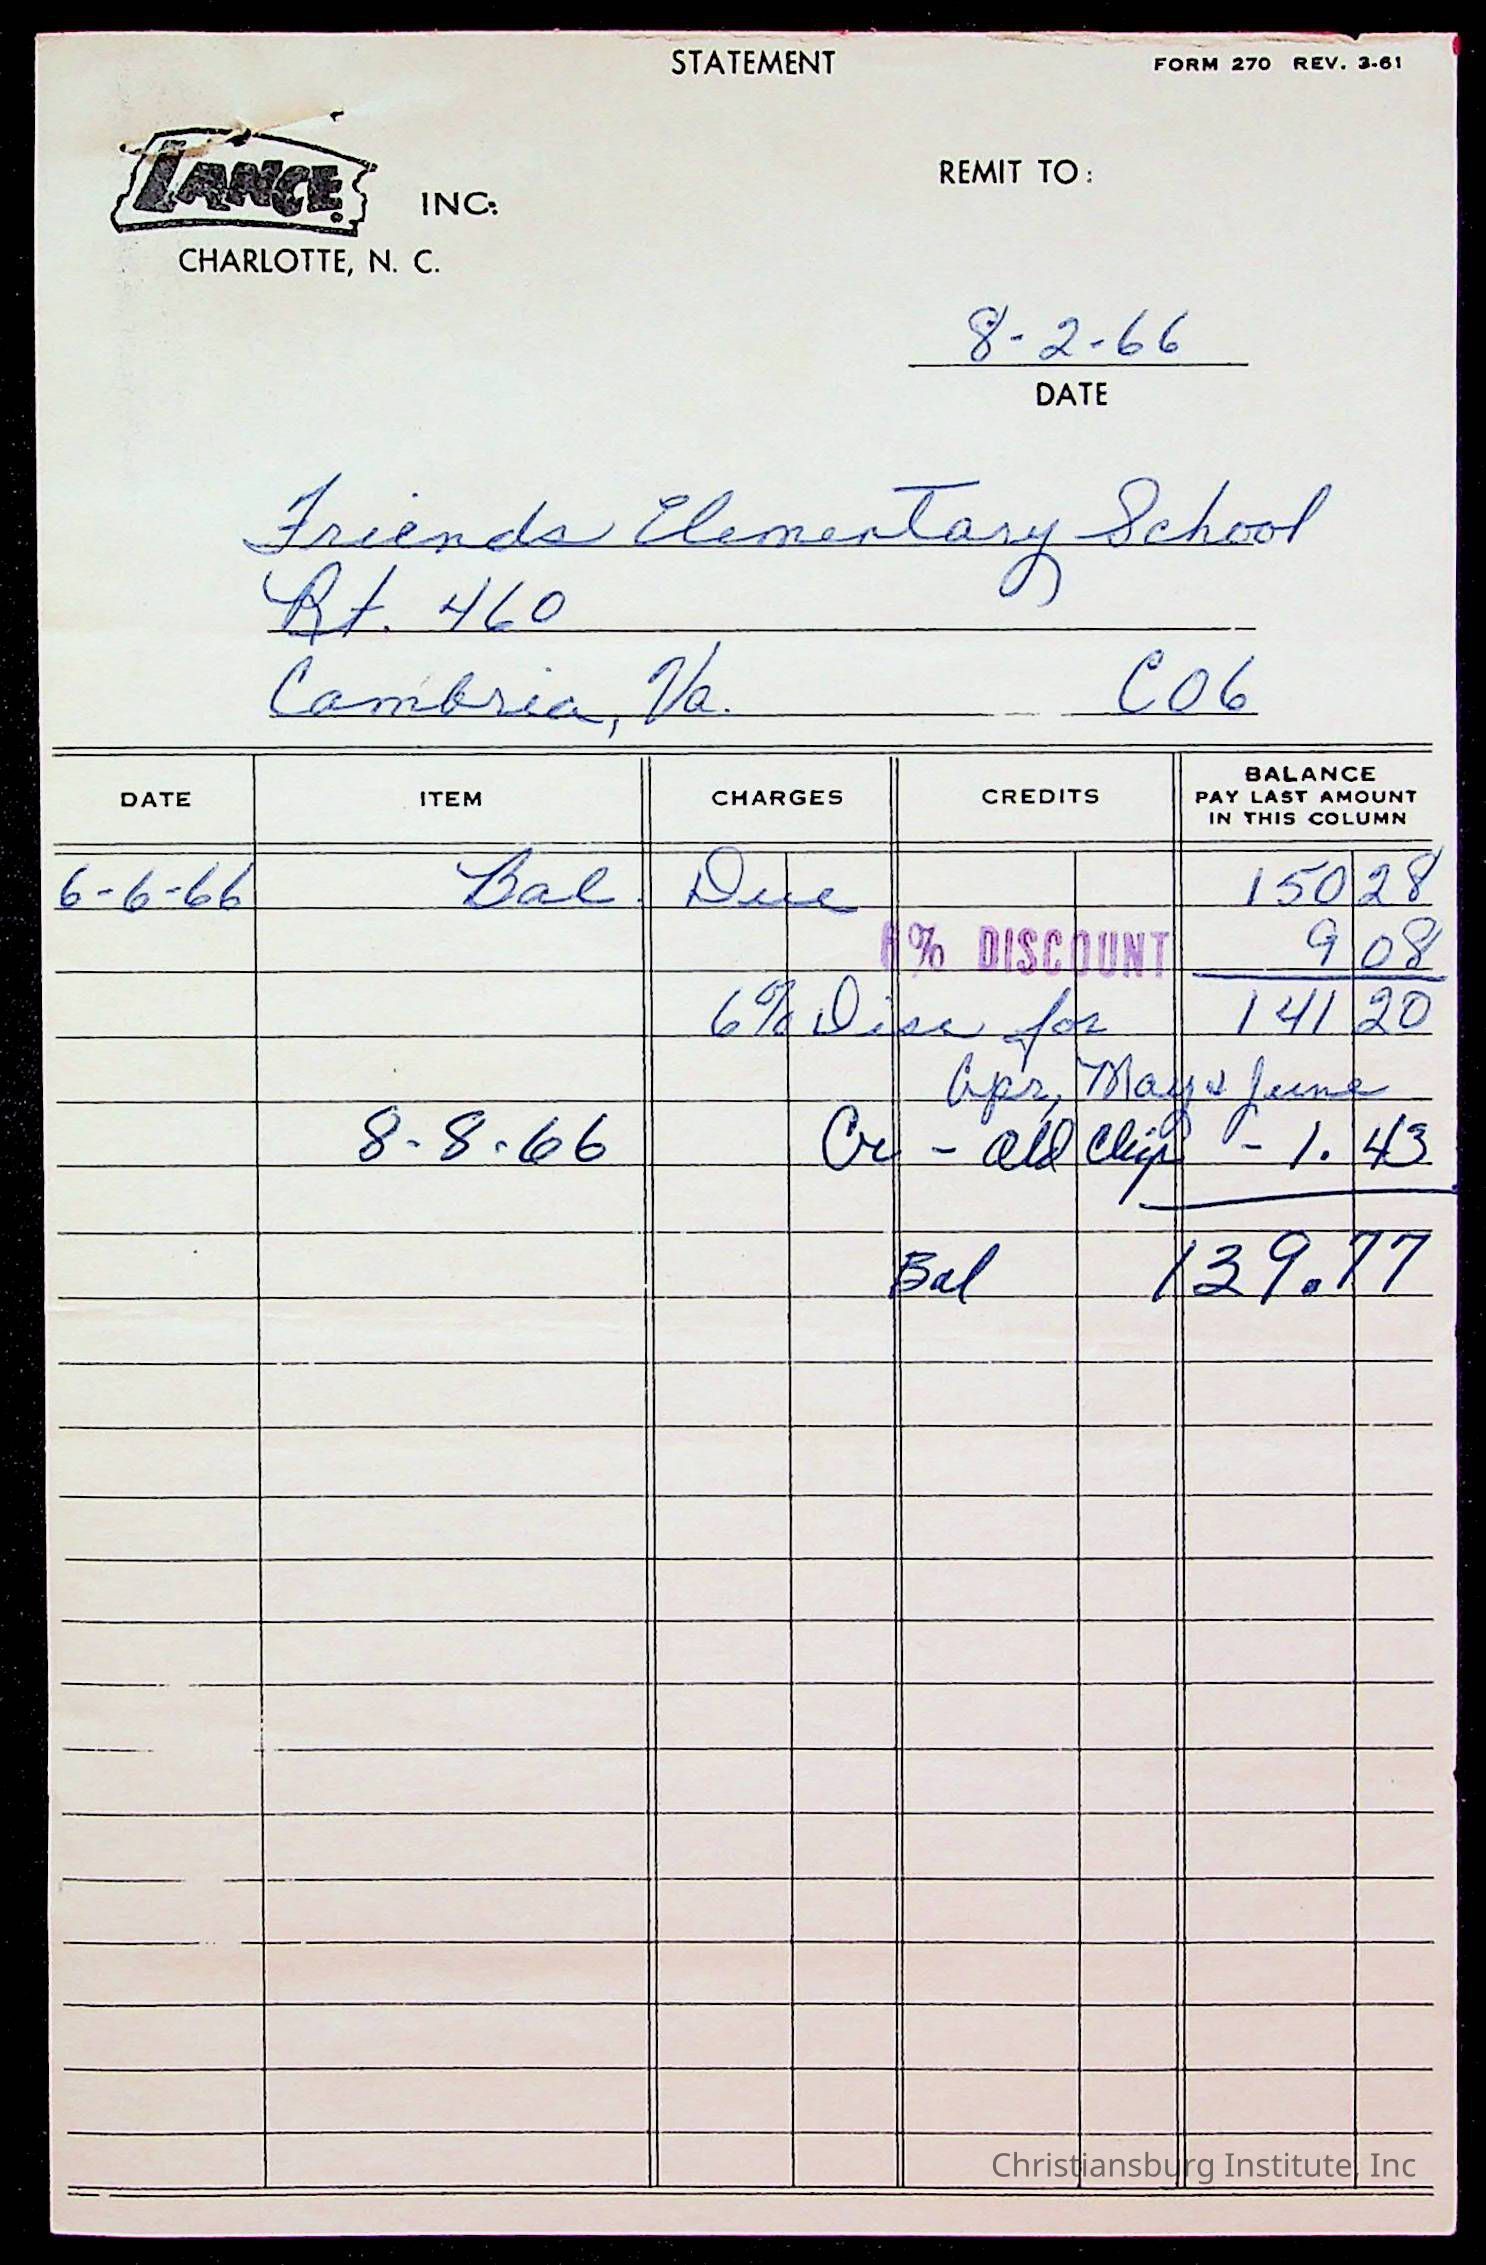 STATEMENT
FORM 270 REV. 3-61
LANCE INC.
CHARLOTTE, N. C.
REMIT TO:
8-2-66
DATE
Friends Elementary School
Rt. 460
Cambria, Va. C06
DATE ITEM CHARGES CREDITS BALANCE
PAY LAST AMOUNT
IN THIS COLUMN
6-6-66 Bal. Due 150 28
6% DISCOUNT 9 08
6% Disc for 141 20
Apr, May & June
8-8-66 Cr - old chips - 1.43
Bal 139.77
Christiansburg Institute, Inc